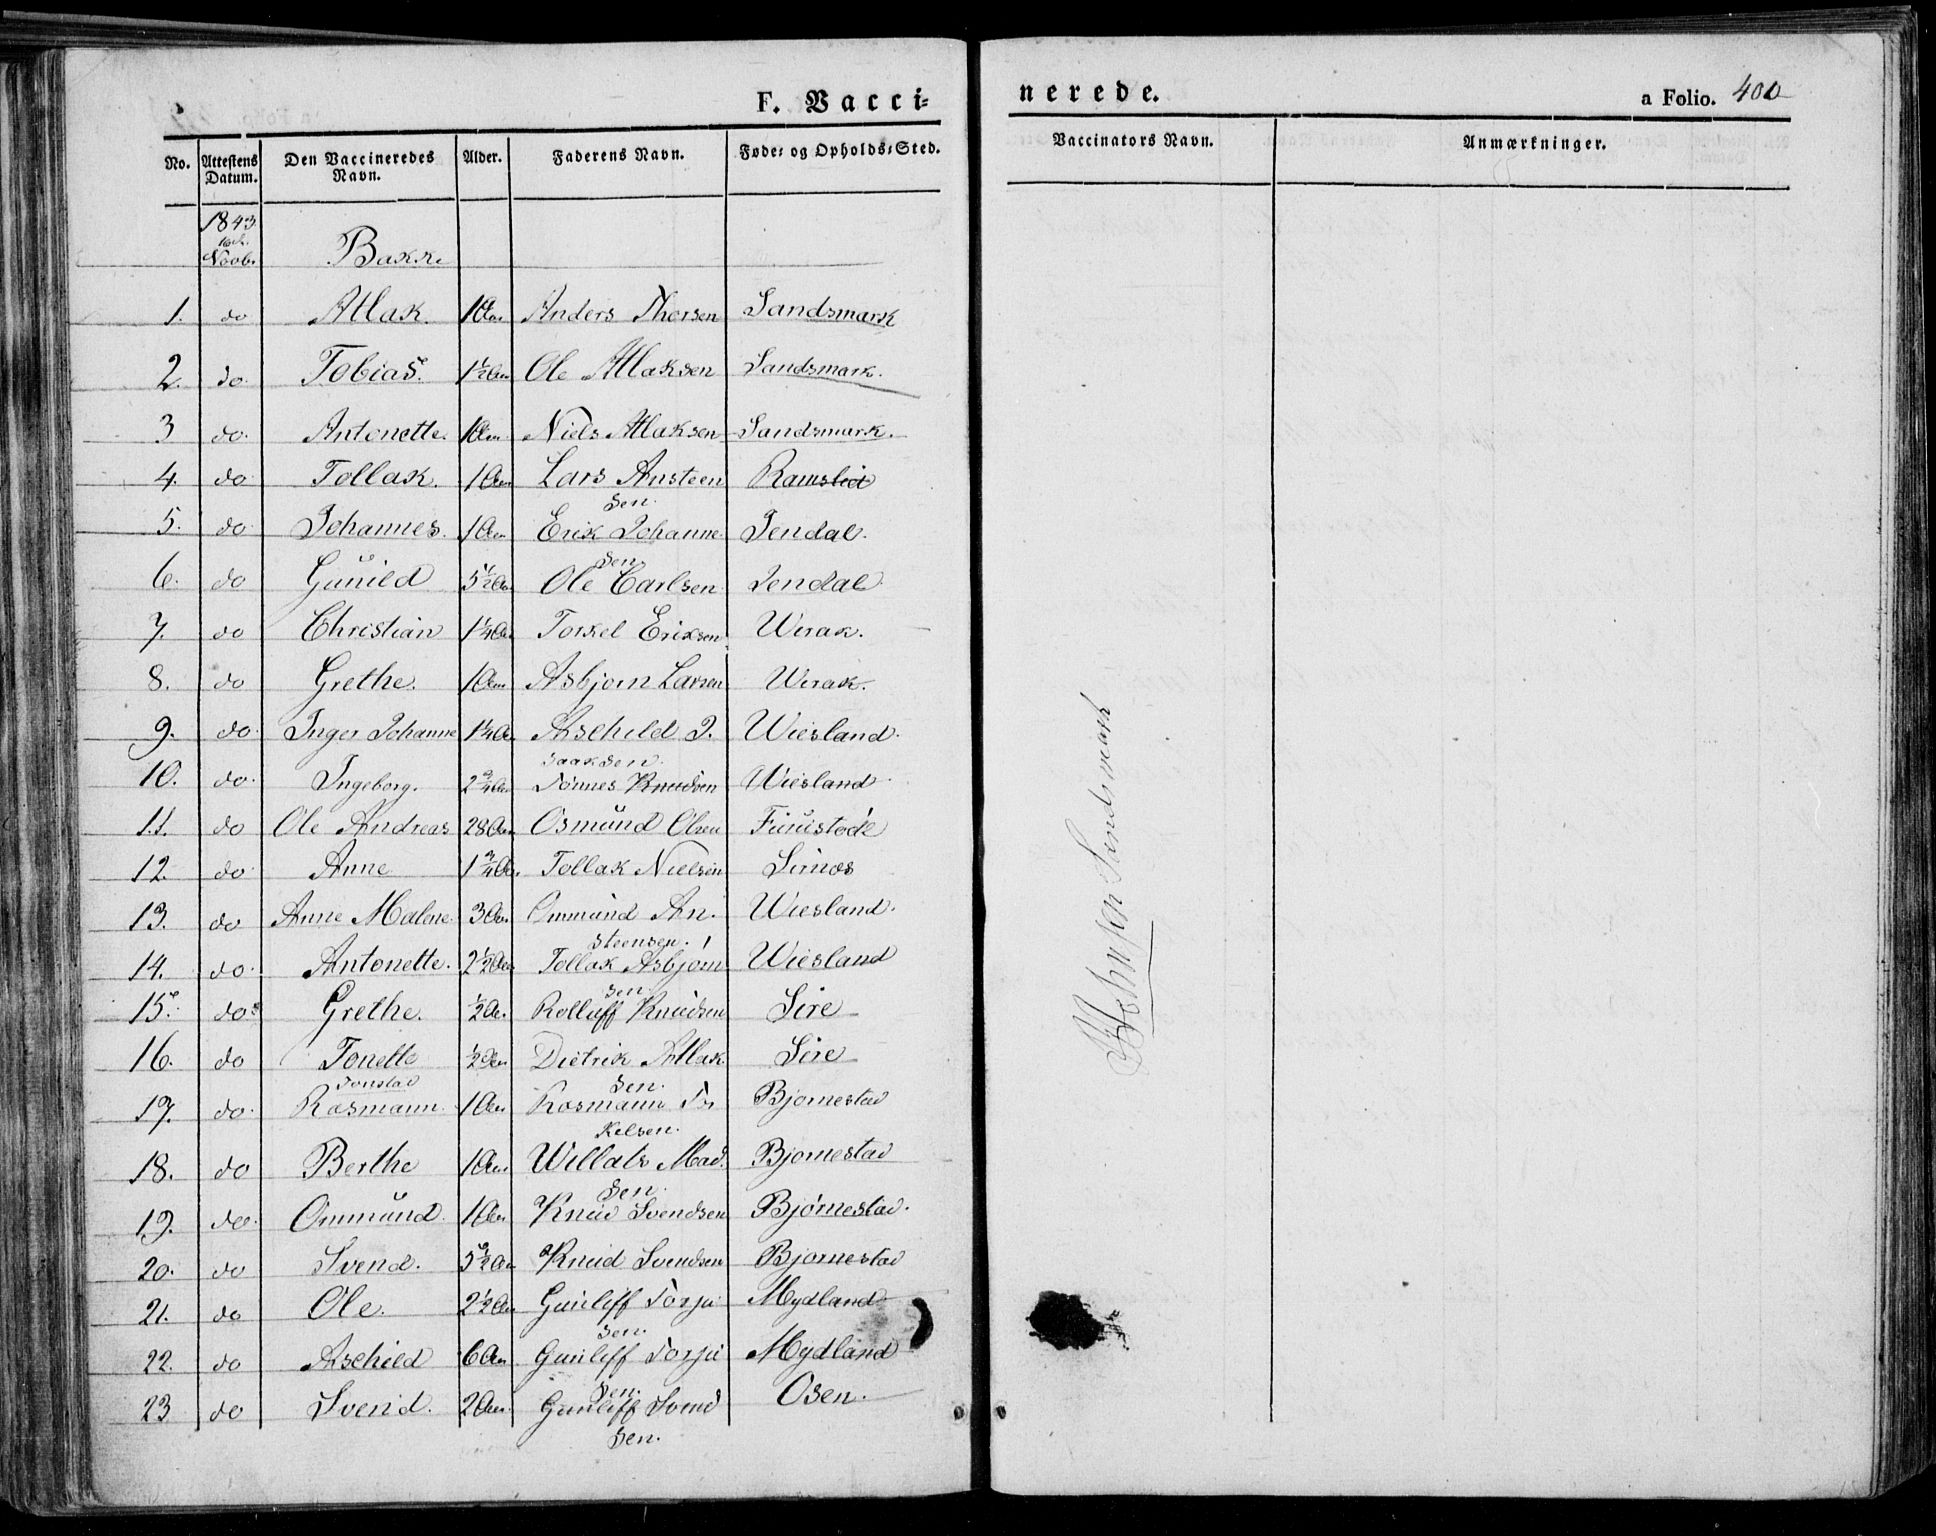 F. Vacci=
nerede.
a Folio. 400
No. Attestens Datum. Den Vaccineredes Navn. Alder. Faderens Navn. Føde= og Opholds=Sted. Vaccinators Navn. Anmærkninger.
1843
Novb. Bakke
1. do Atlak. 1 Aar Anders Thorsen Sandsmark
2. do. Tobias. 1½ Aar Ole Atlaksen Sandsmark.
3 do. Antonette. 1 Aar Niels Atlaksen Sandsmark.
4. do Tollak. 1 Aar Lars Ansteen Ramslid
sen.
5. do Johannes. 1 Aar Erik Johanne Jendal.
sen
6. do Gunild 5½ Aar Ole Carlsen Jendal
7. do Christian 1¼ Aar Torkel Eriksen Wirak.
8. do Grethe. 1 Aar Asbjørn Larsen Wirak.
9. do Inger Johanne 1¼ Aar Aschild I. Wiesland.
saaksen.
10. do. Ingeborg. 2¾ Aar Tönnes Knudsen Wiesland
11. do Ole Andreas 28 Aar Osmund Olsen Furustöl
12. do Anne 1¾ Aar Tollak Nielsen Sirnes
13. do Anne Malene. 3 Aar Ommund An. Wiesland.
steensen.
14. do. Antonette. 2½ Aar Tollak Asbjørn Wiesland
sen
15. do Grethe. ½ Aar Rolluff Knudsen Sire
16. do Tonette ½ Aar Dietrik Atlak Sire
sen.
Jonstad
17. do. Rasmann. 1 Aar Rasmann To Bjørnestad
kelsen.
18. do Berthe 1 Aar Willats Mad. Bjørnestad
sen.
19. do. Ommund. 1 Aar Knud Svendsen Bjørnestad.
20. do Svend. 5½ Aar Knud Svendsen Bjørnestad
21. do Ole. 2½ Aar Gunleff Torju Mydland
sen.
22. do Aschild 6 Aar Gunleff Torju Mydland
sen.
23 do Svend. 2 Aar. Gunleff Svend Osen.
sen.
Sandsmark